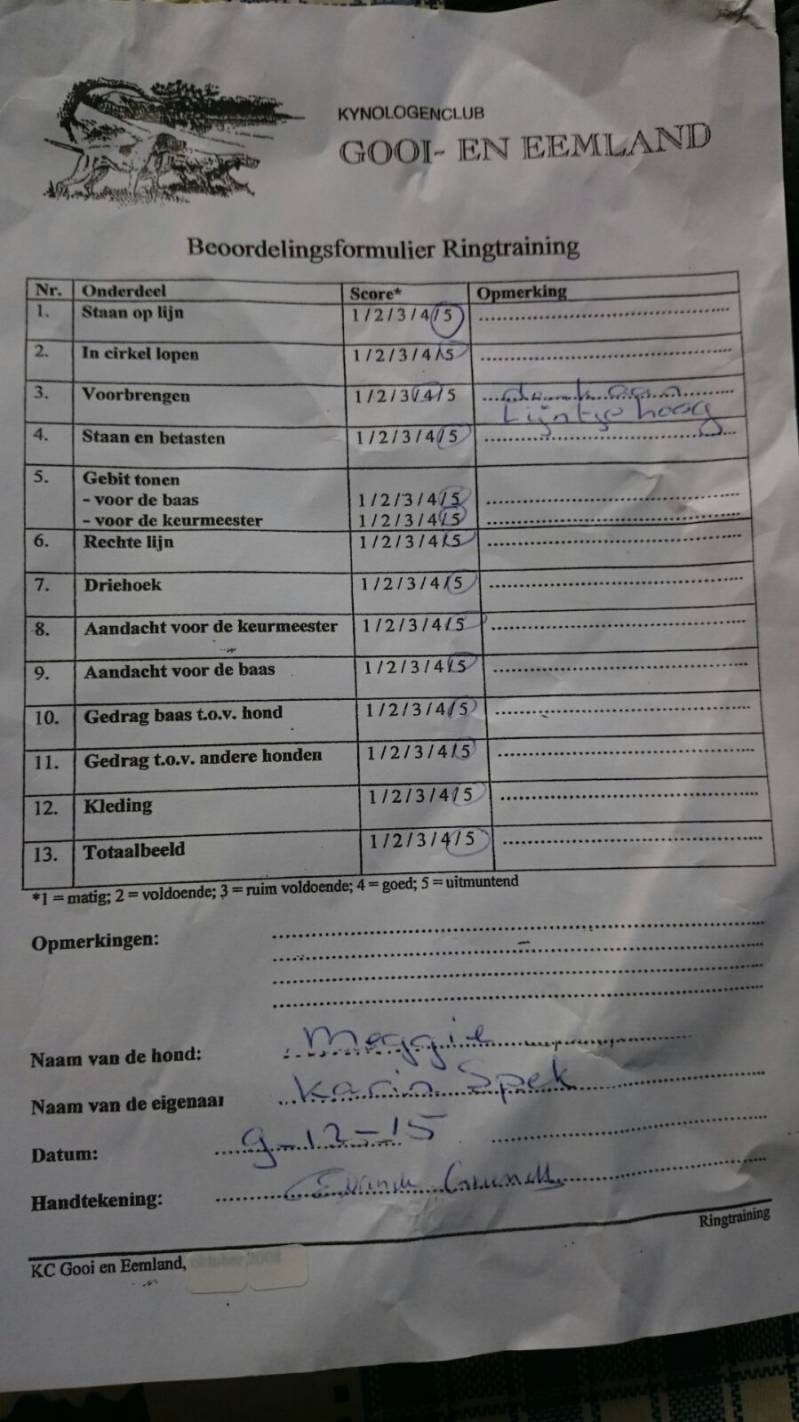 KYNOLOGENCLUB
GOOI- EN EEMLAND
Beoordelingsformulier Ringtraining
Nr. Onderdeel Score* Opmerking
1. Staan op lijn 1/2/3/4/5
2. In cirkel lopen 1/2/3/4/5
3. Voorbrengen 1/2/3/4/5 denk aan
Lijntje hoog
4. Staan en betasten 1/2/3/4/5
5. Gebit tonen
- voor de baas 1/2/3/4/5
- voor de keurmeester 1/2/3/4/5
6. Rechte lijn 1/2/3/4/5
7. Driehoek 1/2/3/4/5
8. Aandacht voor de keurmeester 1/2/3/4/5
9. Aandacht voor de baas 1/2/3/4/5
10. Gedrag baas t.o.v. hond 1/2/3/4/5
11. Gedrag t.o.v. andere honden 1/2/3/4/5
12. Kleding 1/2/3/4/5
13. Totaalbeeld 1/2/3/4/5
*1 = matig; 2 = voldoende; 3 = ruim voldoende; 4 = goed; 5 = uitmuntend
Opmerkingen:
Naam van de hond: Meggie
Naam van de eigenaar Karin Spek
Datum: 9-12-15
Handtekening:
Ringtraining
KC Gooi en Eemland,